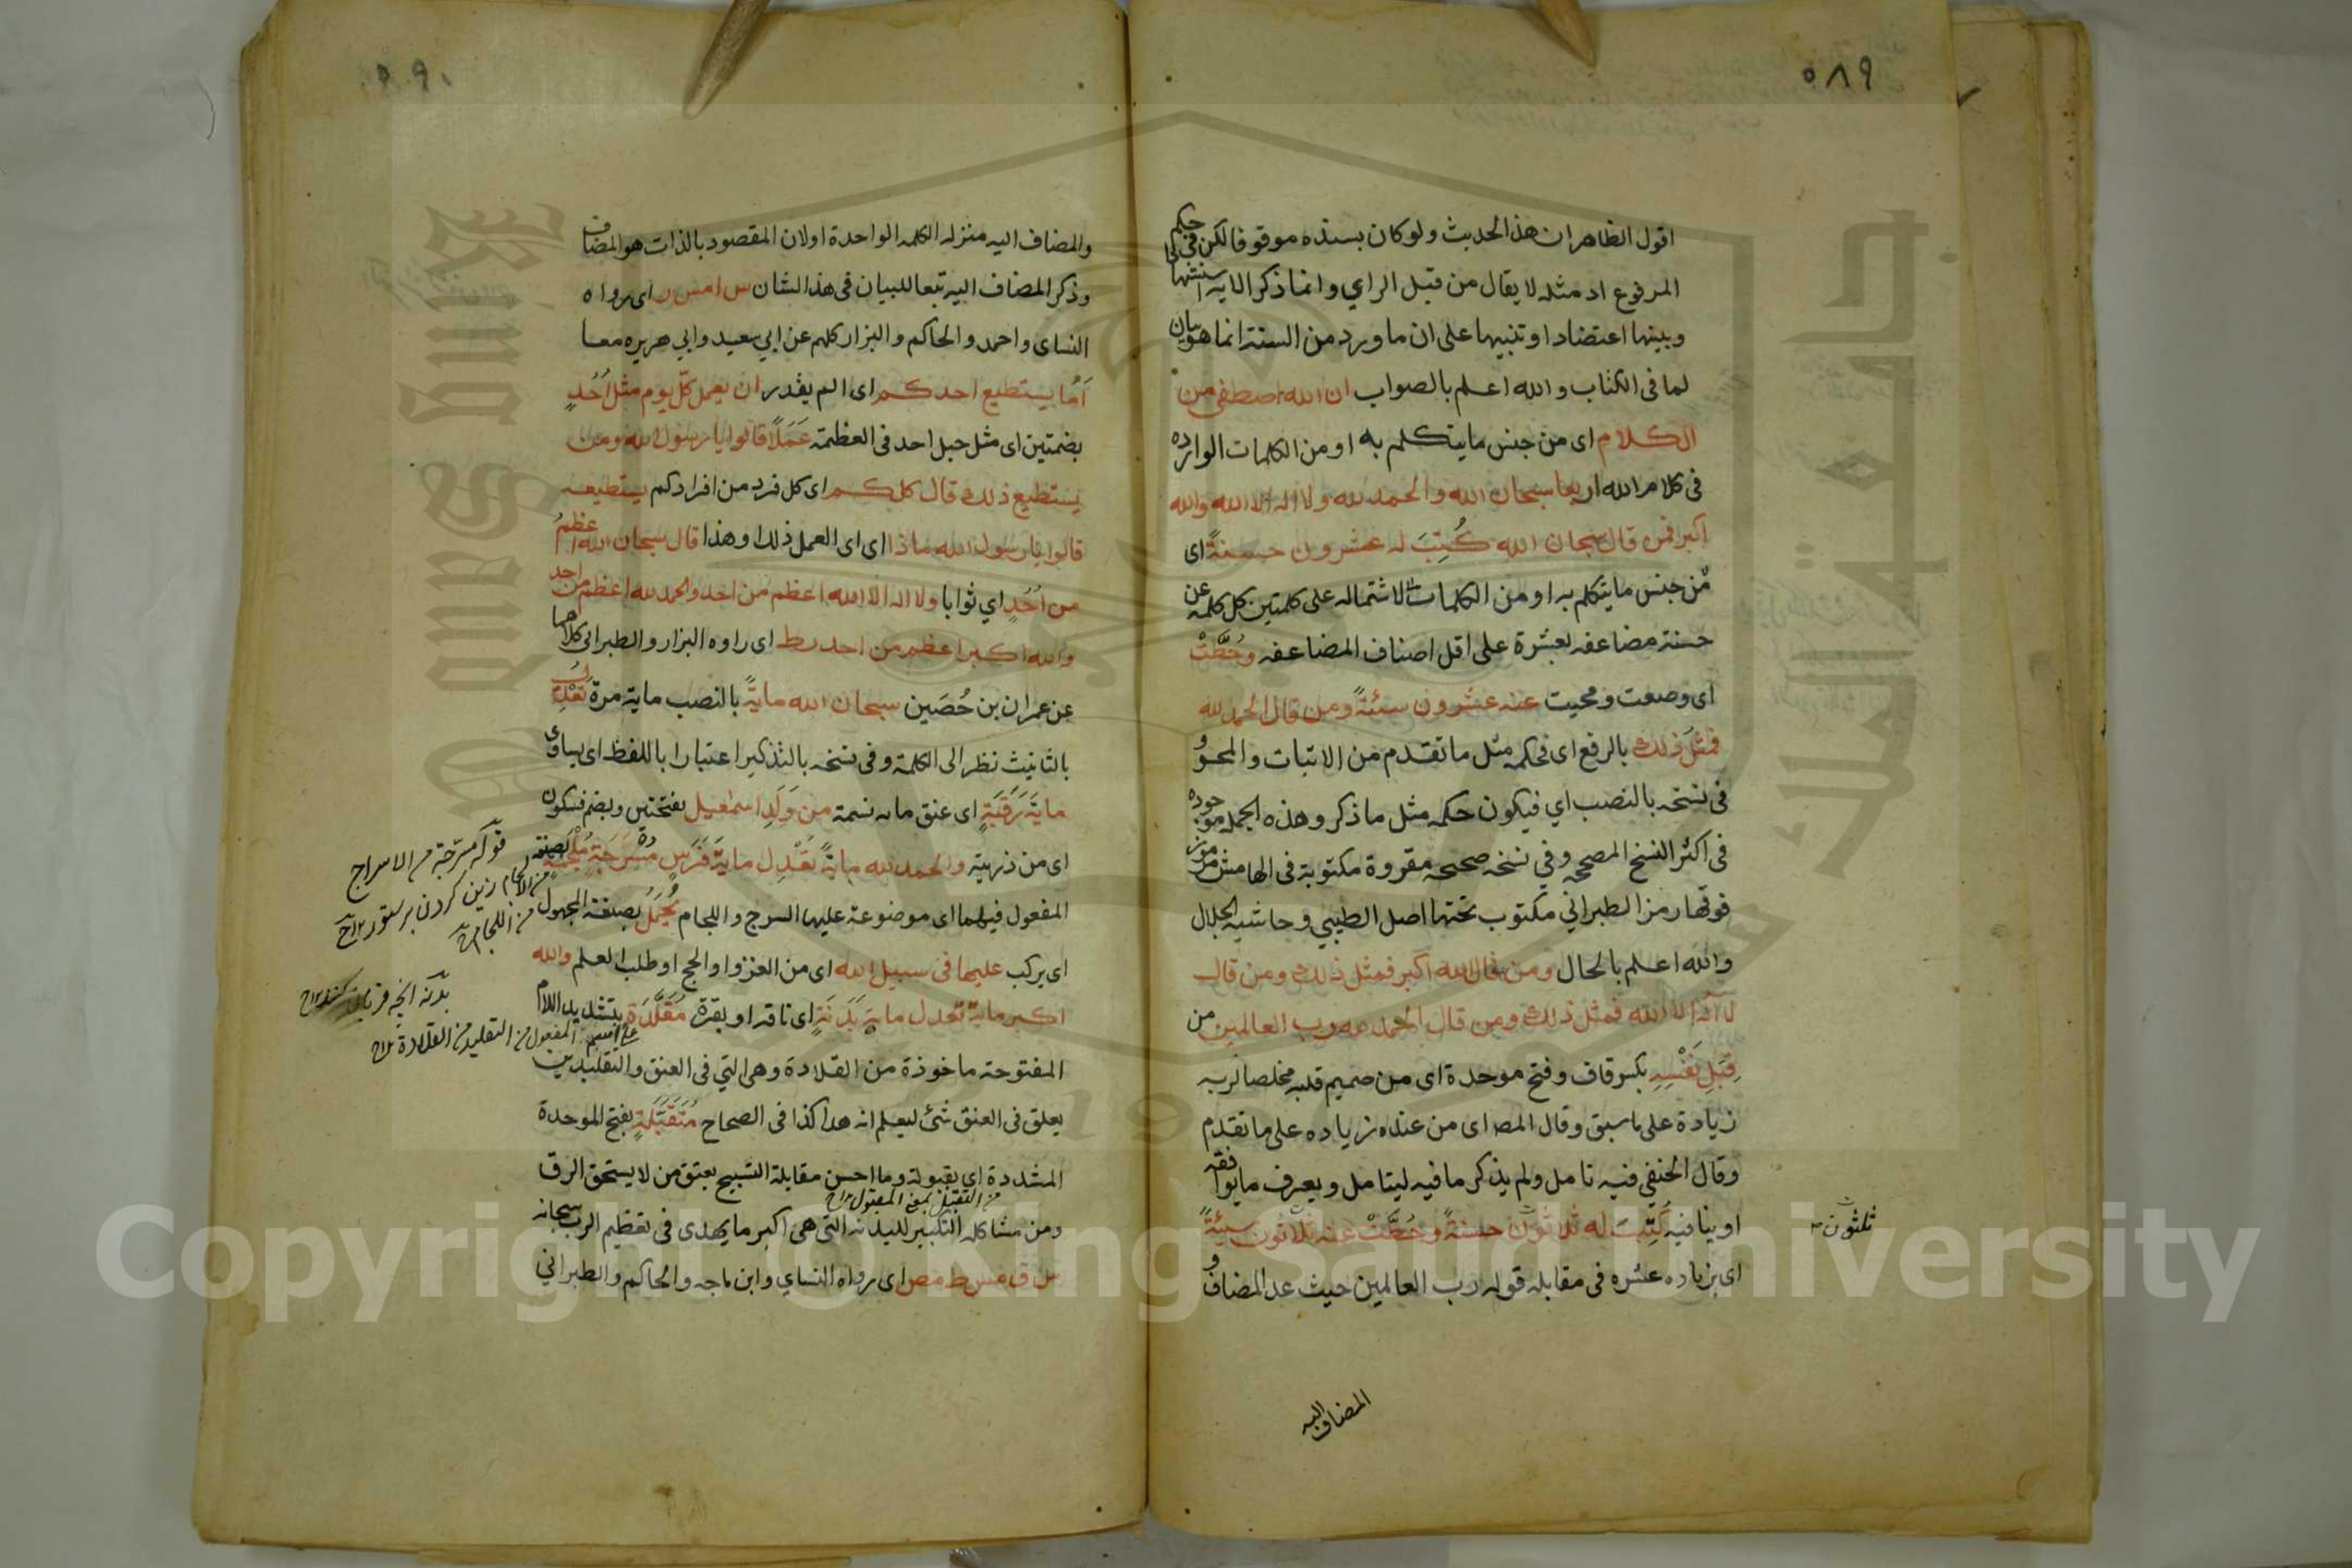 ٥٨٩
اقول الظاهر ان هذا الحديث ولو كان بسنده موقوفا لكن فى حكم
المرفوع اذ مثله لا يقال من قبل الراي وانما ذكر الايه استشهادا
وبينها اعتضادا وتنبيها على ان ما ورد من السنة انما هو بيان
لما فى الكتاب والله اعلم بالصواب ان الله اصطفى من
الكلام اى من جنس ما يتكلم به او من الكلمات الوارده
فى كلام الله اربعا سبحان الله والحمد لله ولا اله الا الله والله
اكبر فمن قال سبحان الله كُتِبَ له عشرون حسنةً اى
من جنس ما يتكلم به او من الكلمات لاشتماله على كلمتين كل كلمة عن
حسنة مضاعفه بعشرة على اقل اصناف المضاعفه وحُطَّتْ
اى وضعت ومحيت عنه عشرون سيئةً ومن قال الحمد لله
فمثلُ ذلك بالرفع اى فحكمه مثل ما تقدم من الاثبات والمحو و
فى نسخه بالنصب اي فيكون حكمه مثل ما ذكر وهذه الجمله موجوده
فى اكثر النسخ المصححه وفي نسخه صحيحه مقروة مكتوبة فى الهامش مرموز
فوقها رمز الطبراني مكتوب تحتها اصل الطيبي وحاشيه الجلال
والله اعلم بالحال ومن قال الله اكبر فمثل ذلك ومن قال
لا اله الا الله فمثل ذلك ومن قال الحمد لله رب العالمين من
قِبَلِ نَفْسِهِ بكسر قاف وفتح موحدة اى من صميم قلبه مخلصا لربه
زيادة على ما سبق وقال المص اى من عنده زياده على ما تقدم
وقال الحنفي فيه تامل ولم يذكر ما فيه ليتامل ويعرف ما يوافقه
او ينافيه كُتِبَت له ثلاثون حسنةً وحُطَّتْ عنه ثلاثون سيئةً
ثلثون
اى بزياده عشره فى مقابله قوله رب العالمين حيث عد المضاف و
المضاف اليه
٥٩٠
والمضاف اليه منزله الكلمه الواحدة اولان المقصود بالذات هو المضاف
وذكر المضاف اليه تبعا للبيان فى هذا الشان س ا مس ر اى رواه
النساى واحمد والحاكم والبزار كلهم عن ابي سعيد وابي هريره معا
اَمَا يستطيع احدكم اى الم يقدر ان يعمل كلّ يوم مثل اُحُدٍ
بضمتين اى مثل جبل احد فى العظمة عَمَلًا قالوا يا رسول الله ومن
يستطيع ذلك قال كلكم اى كل فرد من افرادكم يستطيعه
قالوا يا رسول الله ماذا اى اى العمل ذلك وهذا قال سبحان الله اعظمُ
من اُحُدٍ اي ثوابا ولا اله الا الله اعظم من احد والحمد لله اعظم من احد
والله اكبر اعظم من احد ر ط اى راوه البزار والطبرانى كلاهما
عن عمران بن حُصَين سبحان الله مايةً بالنصب ماية مرة تَعْدِلُ
بالتانيث نظر الى الكلمة وفى نسخه بالتذكير اعتبارا باللفظ اى يساوى
مايةَ رَقَبَةٍ اى عنق مايه نسمة من وَلَدِ اسمٰعيل بفتحتين وبضم فسكون
اى من ذريته والحمد لله مايةً تَعْدِل مايةَ فَرَسٍ مُسْرَجَةٍ مُلْجَمَةٍ بصيغة
المفعول فيهما اى موضوعة عليها السرج واللجام يُحمَلُ بصيغة المجهول
اى يركب عليها فى سبيل الله اى من الغزو او الحج او طلب العلم والله
اكبر مايةً تعدل ماية بَدَنَةٍ اى ناقه او بقرة مُقَلَّدَة بتشديد اللام
المفتوحة ماخوذة من القلادة وهى التي فى العنق والتقليد ان
يعلق فى العنق شئ ليعلم انه هدا كذا فى الصحاح مُتَقَبَّلَةٍ بفتح الموحدة
المشددة اي بقبوله وما احسن مقابلة التسبيح بعتق من لا يستحق الرق
من التقبل بمعنى المقبول
ومن مشاكله التكبير للبدنه التى هى اكبر ما يهدى فى تعظيم الرب سبحانه
س ق مس ط مص اى رواه النساي وابن ماجه والحاكم والطبراني
قوله مسرجة من الاسراج
من اللجام
من التقليد من القلادة